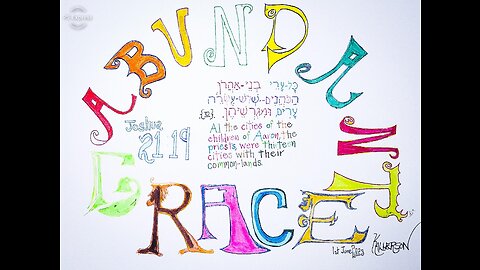 ABUNDANT
כָּל-עָרֵי בְנֵי-אַהֲרֹן,
הַכֹּהֲנִים--שְׁלֹשׁ-עֶשְׂרֵה
עָרִים, וּמִגְרְשֵׁיהֶן. {ס}
Joshua
21 19
All the cities of the
children of Aaron, the
priests, were thirteen
cities with their
common-lands.
GRACE
1st June 2023